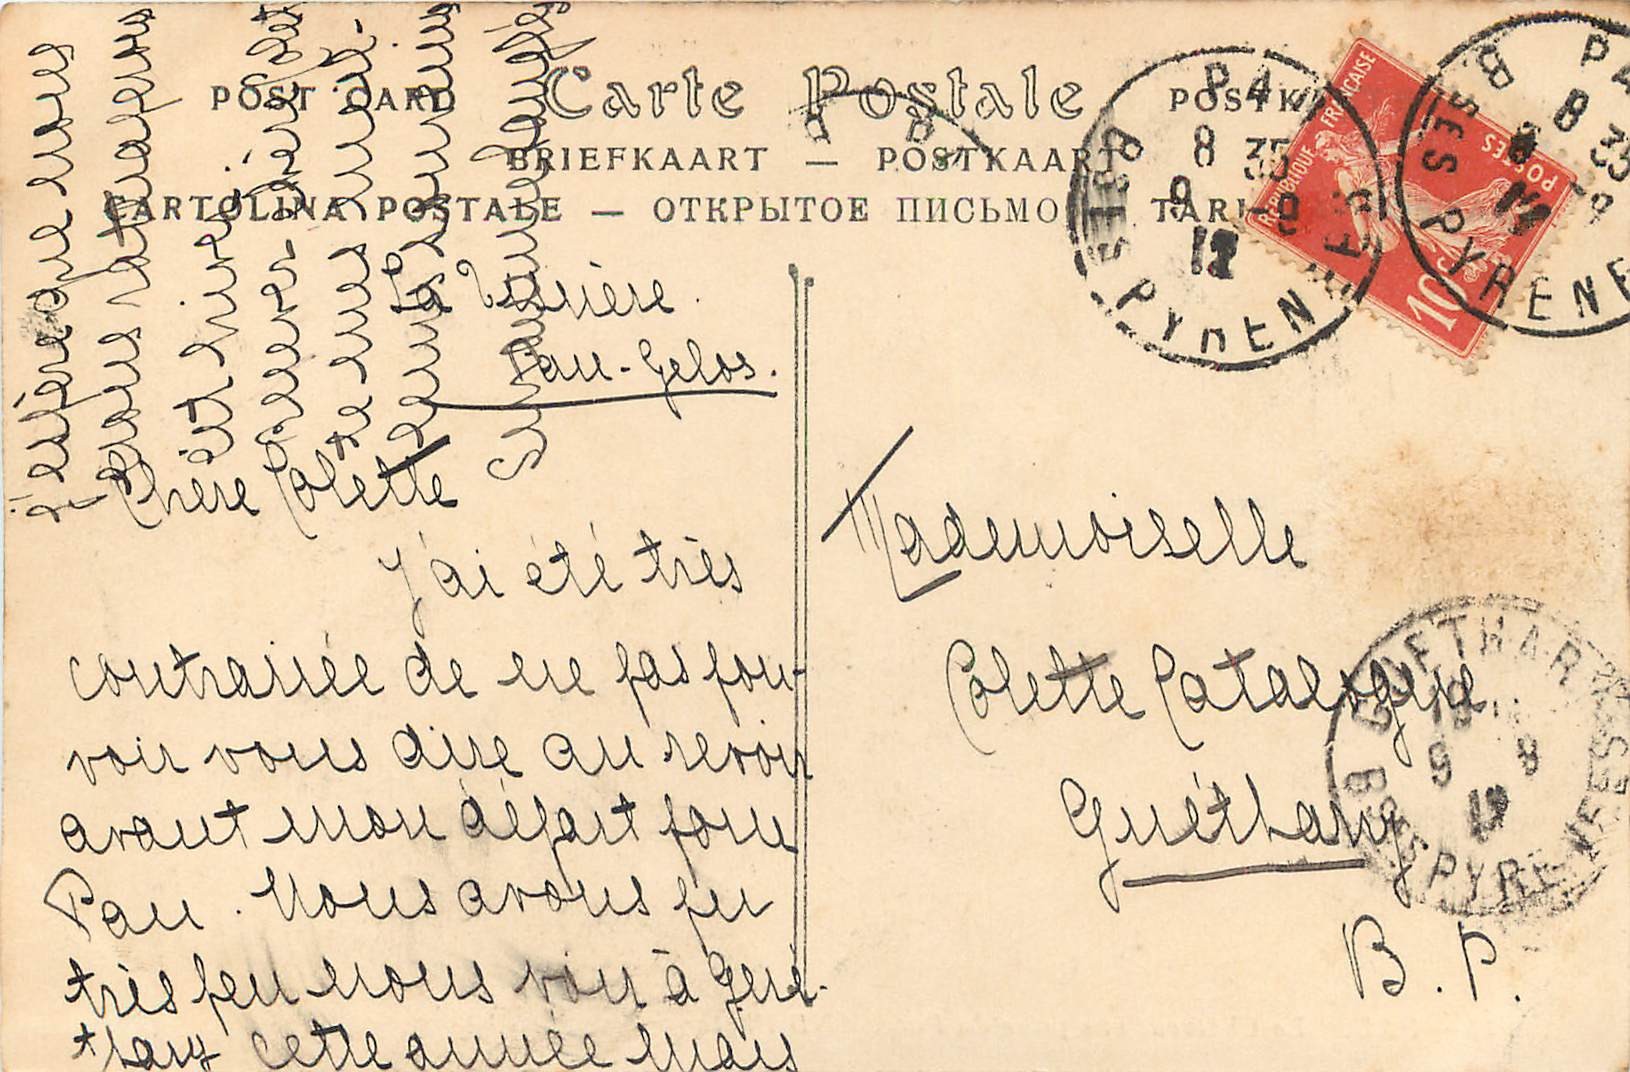 POST CARD Carte Postale POSTK
BRIEFKAART — POSTKAART
CARTOLINA POSTALE — ОТКРЫТОЕ ПИСЬМО
PAU
8 35
9 -9
12
BSES PYRENEES
REPUBLIQUE FRANÇAISE
POSTES
10c
PA
8 35
-9
BSES PYRENE
Pau-Gelos.
Chère Colette
J'ai été très
contrariée de ne pas pou-
voir vous dire au revoir
avant mon départ pour
Pau. Nous avons pu
très peu nous voir à Gué-
thary cette année mais
j'espère que nous
nous
cet hiver
Mademoiselle
Colette Catalogne
Guéthary
B. P.
GUETHARY
9 8
12
BSSES PYRENEES